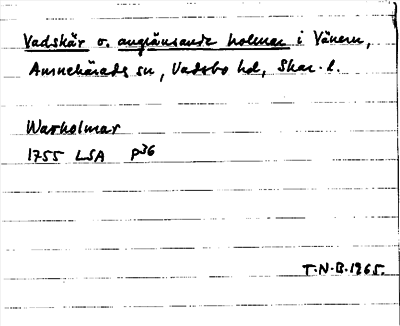 Vadskär o. angränsande holmar i Vänern,
Amnehärads sn, Vadsbo hd, Skar. l.
Warholmar
1755 LSA P36
T.N.B. 1965.